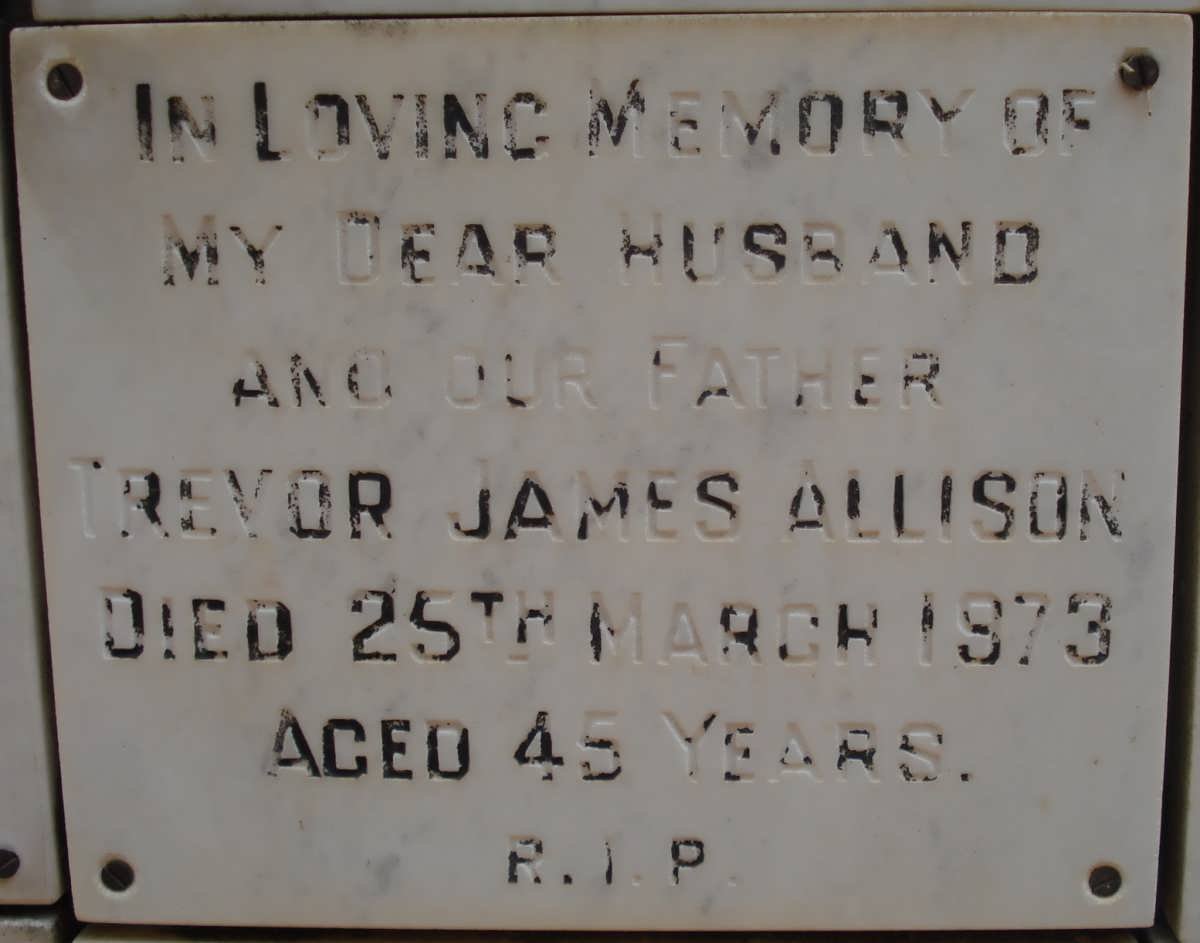 IN LOVING MEMORY OF
MY DEAR HUSBAND
AND OUR FATHER
TREVOR JAMES ALLISON
DIED 25TH MARCH 1973
AGED 45 YEARS.
R.I.P.